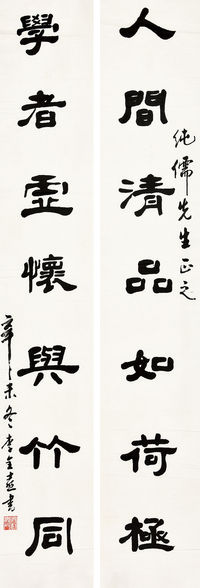 人間清品如荷極
純儒先生正之
學者虛懷與竹同
辛未冬李金壺書